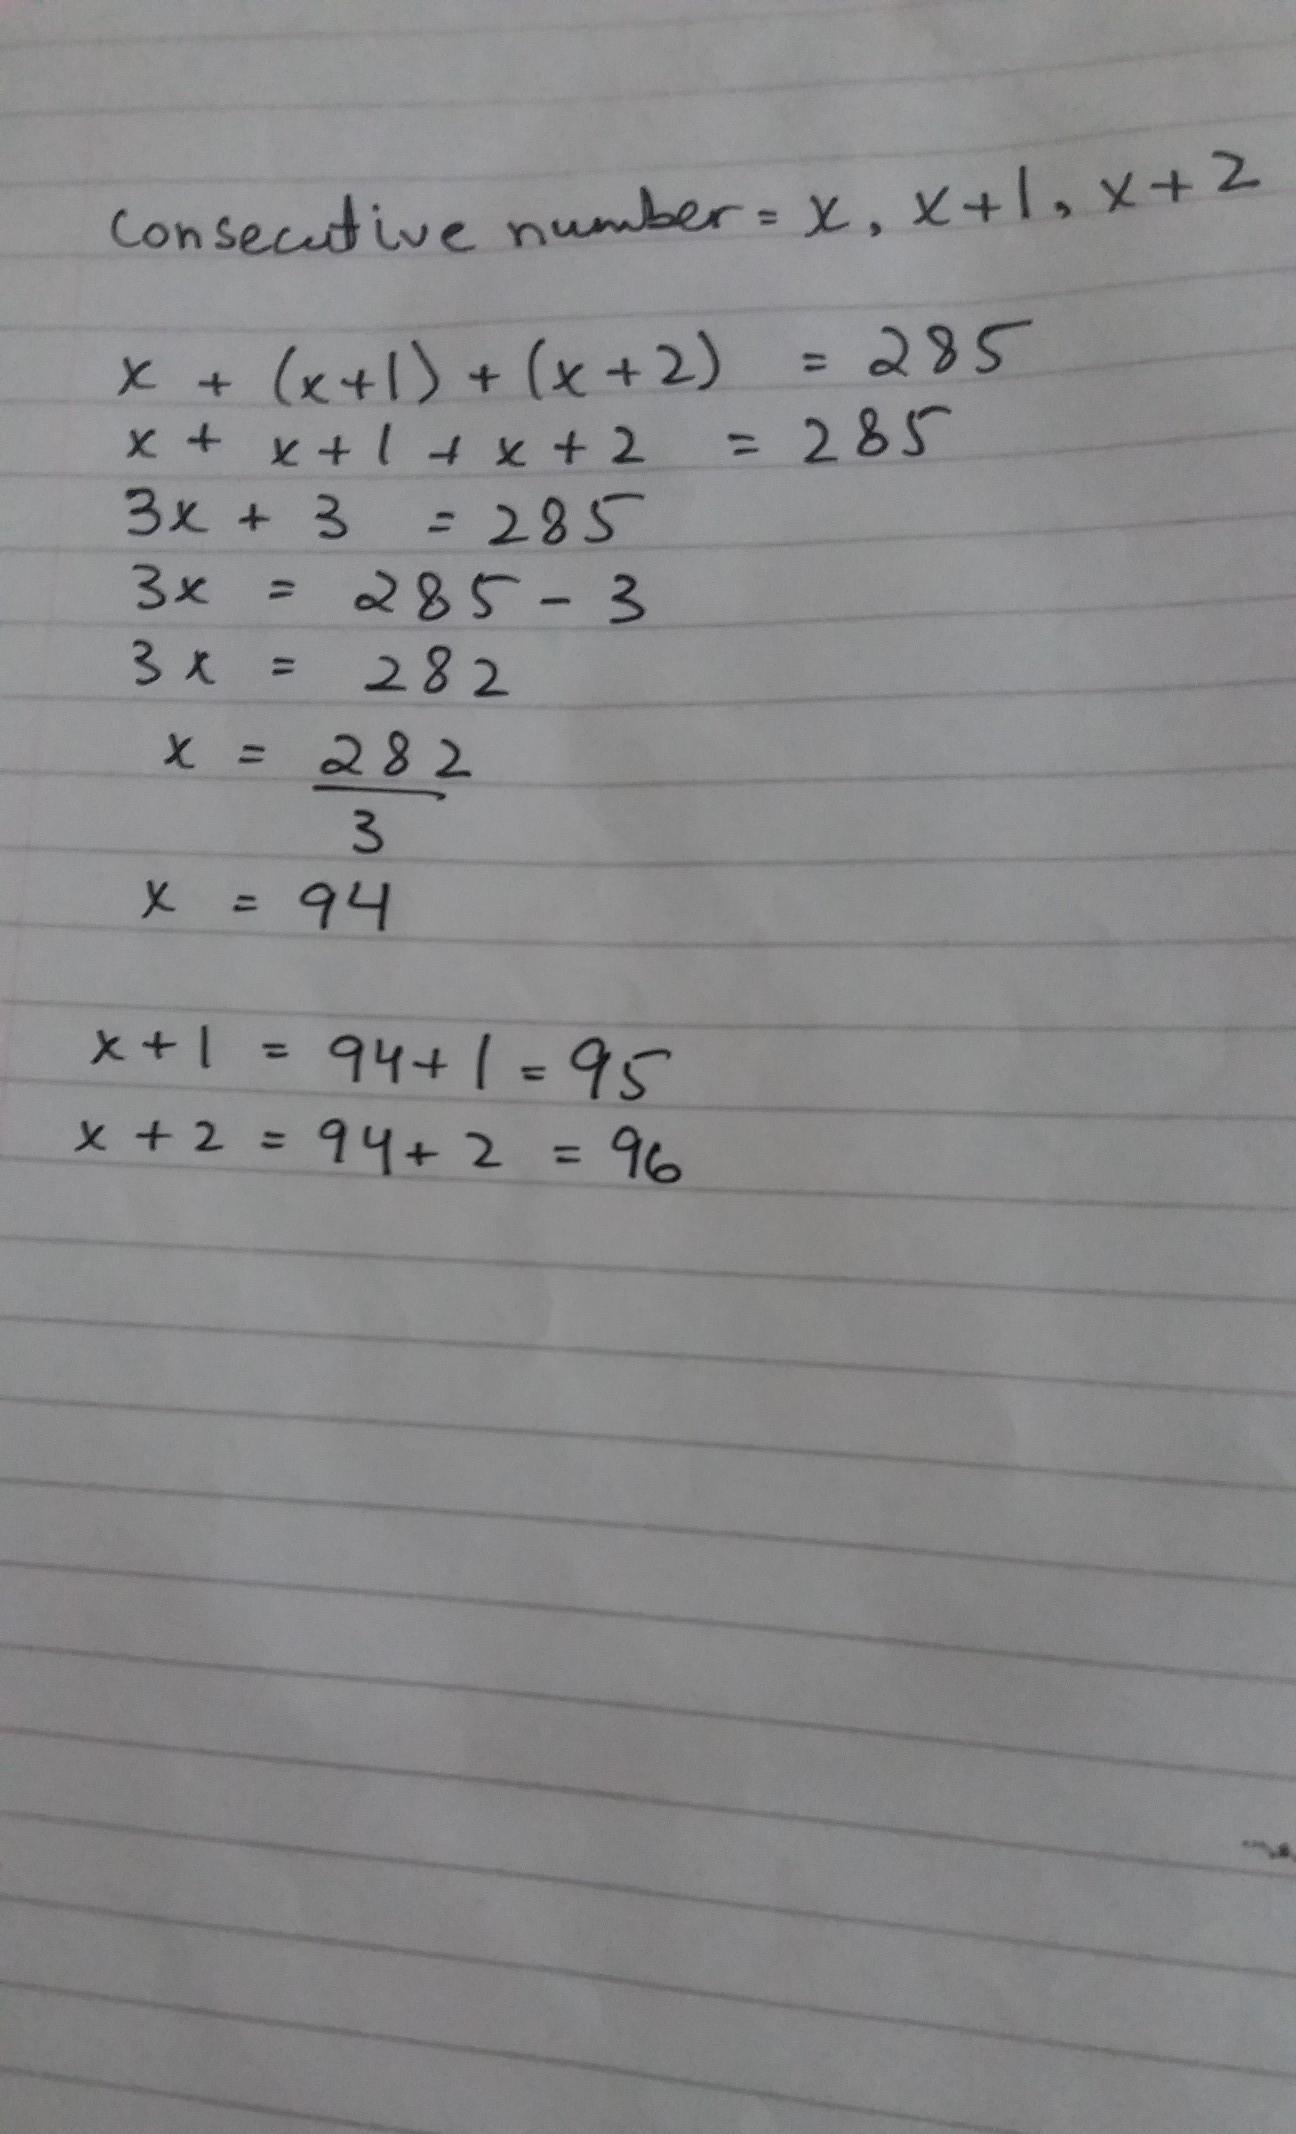 Consecutive number = x, x+1, x+2
x + (x+1) + (x+2) = 285
x + x+1 + x+2 = 285
3x + 3 = 285
3x = 285 - 3
3x = 282
x = 282
3
x = 94
x+1 = 94+1 = 95
x+2 = 94+2 = 96